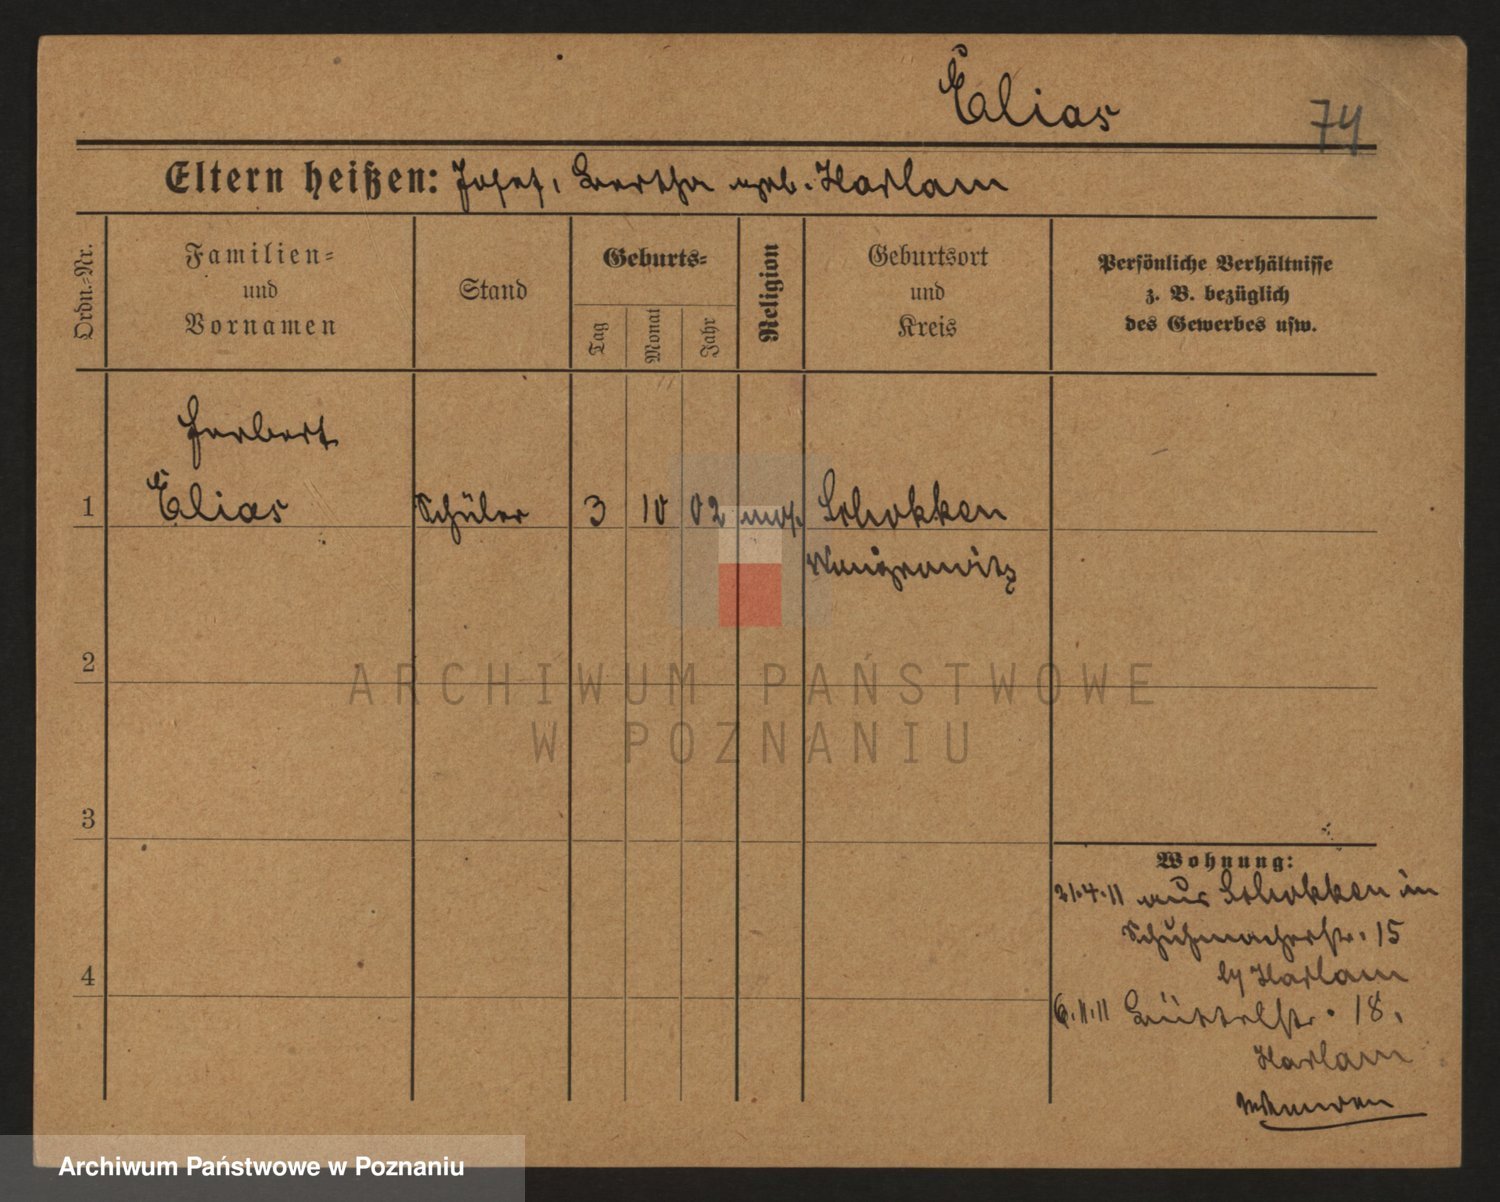 Elias
74
Eltern heißen: Josef, Bertha geb. Harlam
Ordn.-Nr.
Familien-
und
Vornamen
Stand
Geburts-
Tag
Monat
Jahr
Religion
Geburtsort
und
Kreis
Persönliche Verhältnisse
z. B. bezüglich
des Gewerbes usw.
Herbert
1 Elias Schüler 3 10 02 mos. Schokken
Wongrowitz
2
3
4
Wohnung:
21.4.11 aus Schokken in
Schuhmacherstr. 15
by Harlam
6.11.11 Büttelstr. 18.
Harlam
ARCHIWUM PAŃSTWOWE
W POZNANIU
Archiwum Państwowe w Poznaniu